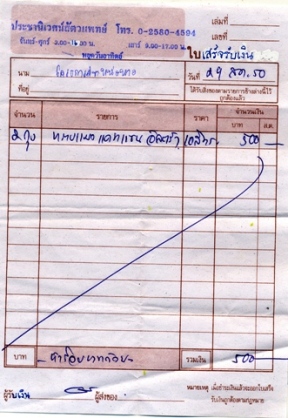 ประชานิเวศน์สัตวแพทย์ โทร. 0-2580-4594
จันทร์-ศุกร์ 9.00- .30 น. เสาร์ 9.00-17.00 น.
หยุดวันอาทิตย์
เล่มที่
เลขที่
ใบเสร็จรับเงิน
นาม
วันที่ 29 ส.ค. 50
ที่อยู่
ได้รับสิ่งของตามรายการข้างล่างนี้ไว้
ถูกต้องแล้ว
จำนวน รายการ ราคา จำนวนเงิน
บาท ส.ต.
2 ถุง 500 —
บาท - ห้าร้อยบาทถ้วน - รวมเงิน 500 —
ผู้รับเงิน ผู้ส่งของ
หมายเหตุ เมื่อชำระเงินแล้วจะออกใบเสร็จ
รับเงินถูกต้องตามกฎหมาย